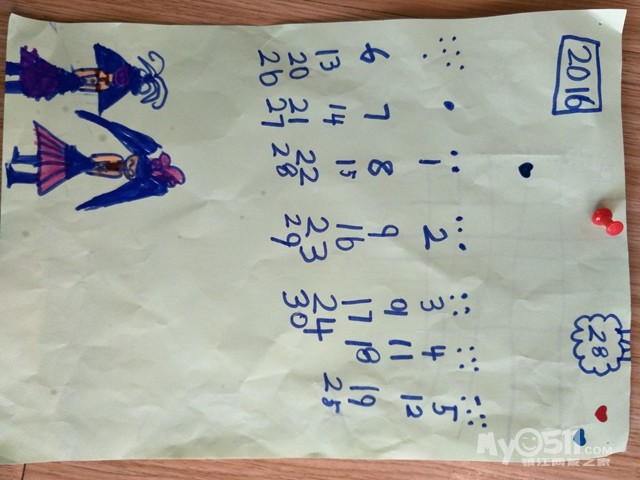 2016
28
1 2 3 4 5
6 7 8 9 9 11 12
13 14 15 16 17 18 19
20 21 22 23 24 25
26 27 28 29 30
My0511.com
镇江网友之家